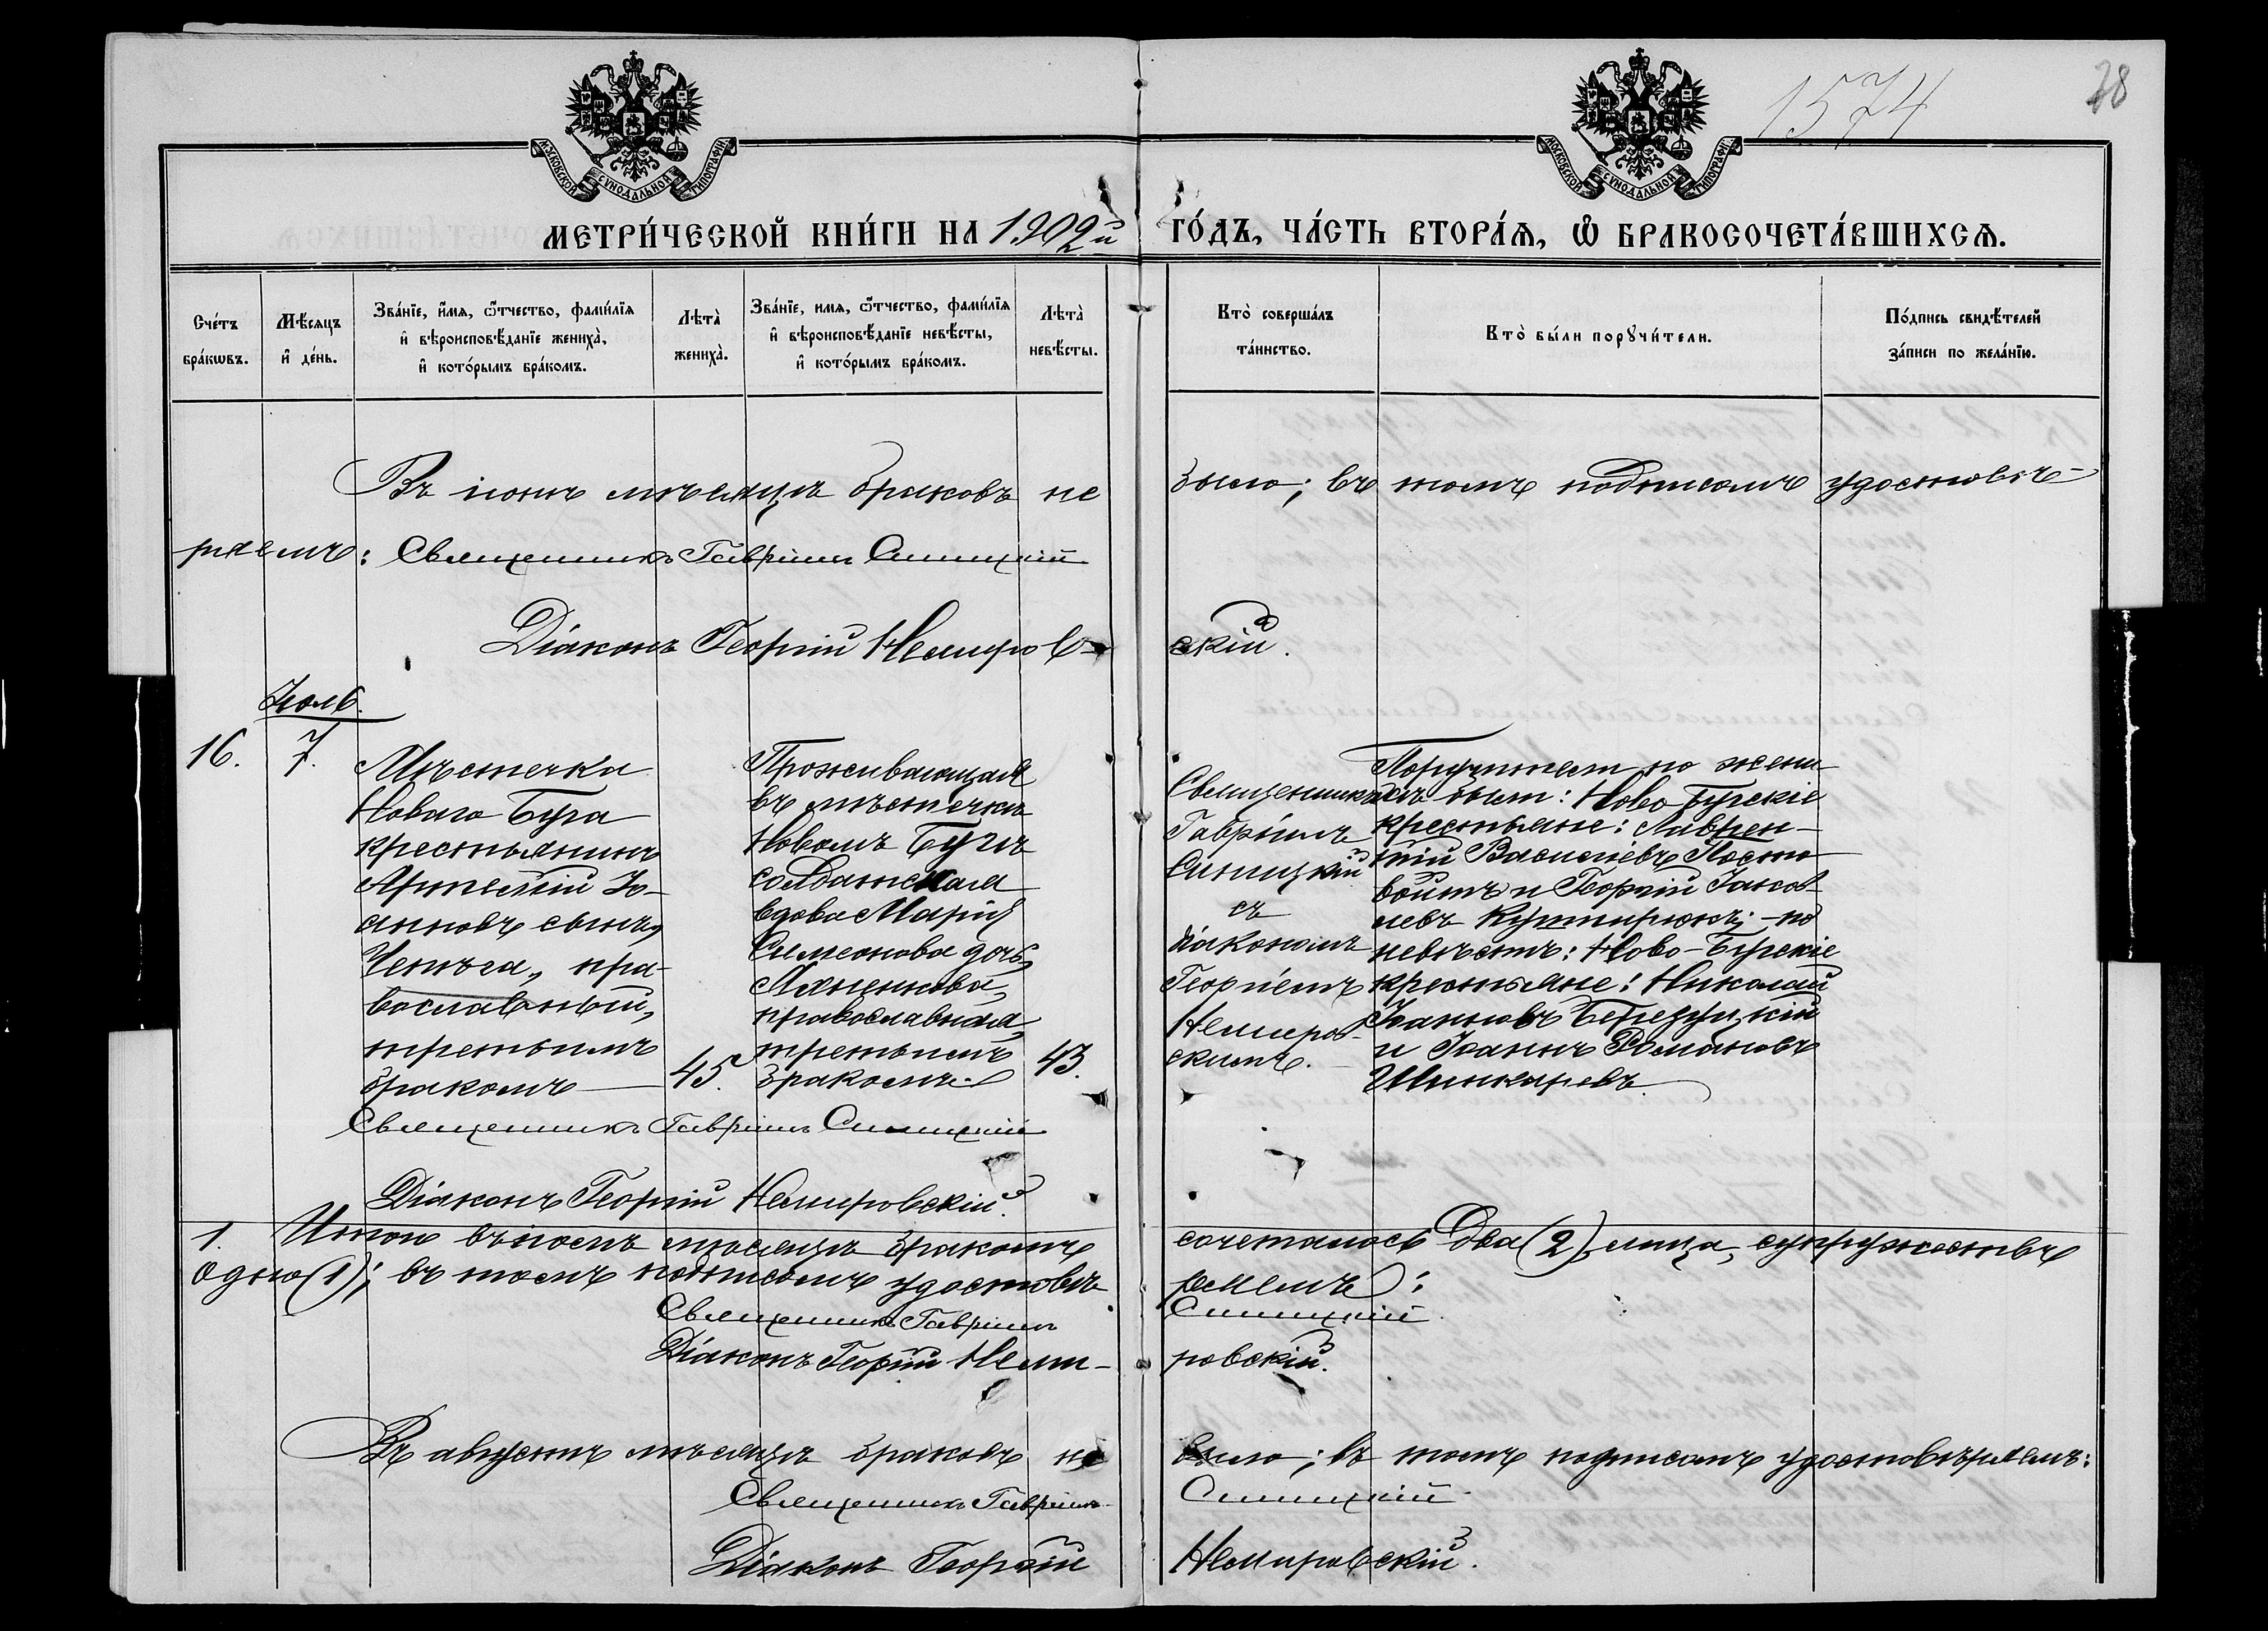 1574
28
МОСКОВСКОЙ СѴНОДАЛЬНОЙ ТИПОГРАФІИ
МОСКОВСКОЙ СѴНОДАЛЬНОЙ ТИПОГРАФІИ
МЕТРИ́ЧЕСКОЙ КНИ́ГИ НА 1902й ГО́ДЪ, ЧА́СТЬ ВТОРА́Ѧ, Ѽ БРАКОСОЧЕТА́ВШИХСѦ.
Сче́тъ
бра́кѡвъ.
Мѣ́сяцъ
и҆ де́нь.
Зва́нїе, и҆́мѧ, ѻ҆́тчество, фами́лїѧ
и҆ вѣроисповѣ́данїе жениха̀,
и҆ кото́рымъ бра́комъ.
Лѣта̀
жениха̀.
Зва́нїе, имѧ, ѻ҆́тчество, фами́лїѧ
и҆ вѣроисповѣ́данїе невѣ́сты,
и҆ кото́рымъ бра́комъ.
Лѣта̀
невѣ́сты.
Кто̀ соверша́лъ
та́инство.
Кто̀ бы́ли порꙋчи́тели.
По́дпись свидѣ́телей
за́писи по жела́нїю.
Въ іюнѣ мѣсяцѣ браковъ не было; въ томъ подписомъ удостовѣ-
ряемъ: Священникъ Гавріилъ Синицкій
Діаконъ Георгій Немировскій.
Іюль.
16. 7.
Мѣстечка
Новаго Буга
крестьянинъ
Артемій Іо-
анновъ сынъ
православный,
третьимъ
бракомъ
45.
Проживающая
въ мѣстечкѣ
Новомъ Бугѣ
солдатская
вдова Марія
Симеонова дочь
православная,
третьимъ
бракомъ.
43.
Священникъ
Гавріилъ
Синицкій
съ
діакономъ
Георгіемъ
Немиров-
скимъ.
Поручители по жени-
хѣ были: Ново Бугскіе
крестьяне: Лаврен-
тій Васильевъ Посто-
войтъ и Георгій Іаков-
левъ по
невѣстѣ: Ново-Бугскіе
крестьяне: Николай
Іоанновъ Березуцкій
и Іоаннъ Романовъ
Шинкаревъ.
Священникъ Гавріилъ Синицкій
Діаконъ Георгій Немировскій.
1. Итого въ іюлѣ мѣсяцѣ бракомъ сочеталось два (2) лица, супружествъ
одно (1); въ томъ подписомъ удостовѣряемъ:
Священникъ Гавріилъ Синицкій.
Діаконъ Георгій Немировскій.
Въ августѣ мѣсяцѣ браковъ не было; въ томъ подписомъ удостовѣряемъ:
Священникъ Гавріилъ Синицкій.
Діаконъ Георгій Немировскій.